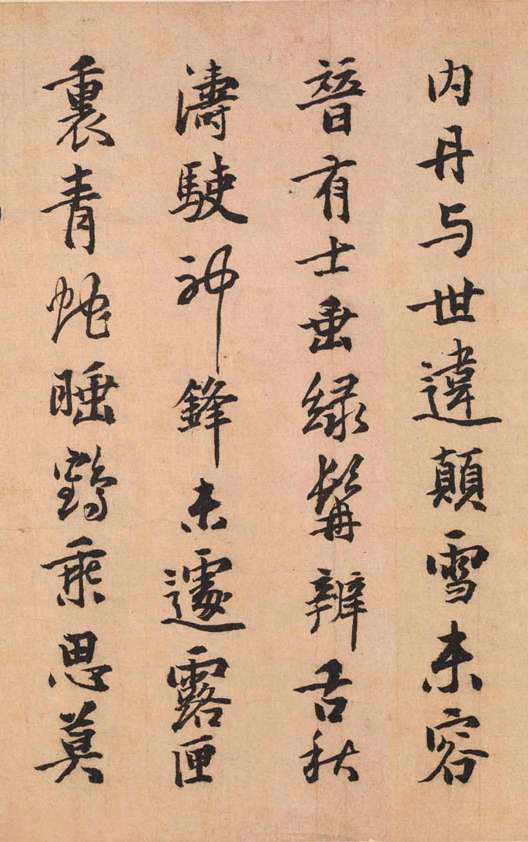 内丹与世違顛雪未容
簪有士垂緑髯辨舌秋
濤駛神鋒未遽露匣
裏青蛇睡鶴乘思莫